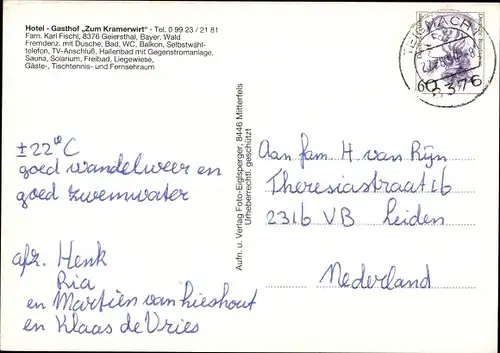 Hotel - Gasthof „Zum Kramerwirt“ - Tel. 0 99 23 / 21 81
Fam. Karl Fischl, 8376 Geiersthal, Bayer. Wald
Fremdenz. mit Dusche, Bad, WC, Balkon, Selbstwähl-
telefon, TV-Anschluß, Hallenbad mit Gegenstromanlage,
Sauna, Solarium, Freibad, Liegewiese,
Gäste-, Tischtennis- und Fernsehraum
± 22°C
goed wandelweer en
goed zwemwater
afz. Henk
Ria
en Martien van Lieshout
en Klaas de Vries
Aufn. u. Verlag Foto-Eiglsperger, 8446 Mitterfels
Urheberrechtl. geschützt
60
8376
Aan fam H van Rijn
Theresiastraat 16
2316 VB Leiden
Nederland